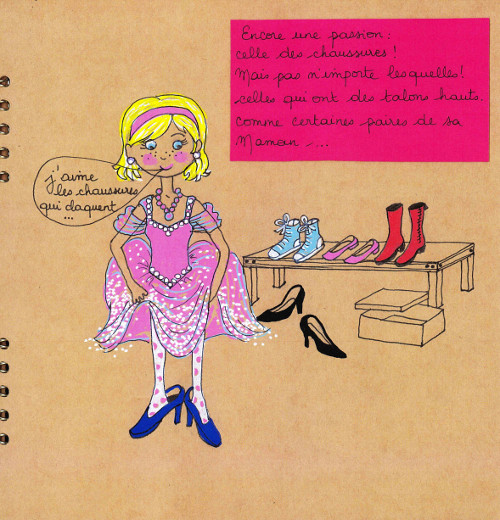 Encore une passion :
celle des chaussures !
Mais pas n'importe lesquelles !
celles qui ont des talons hauts.
comme certaines paires de sa
Maman ....
j'aime
les chaussures
qui claquent
...